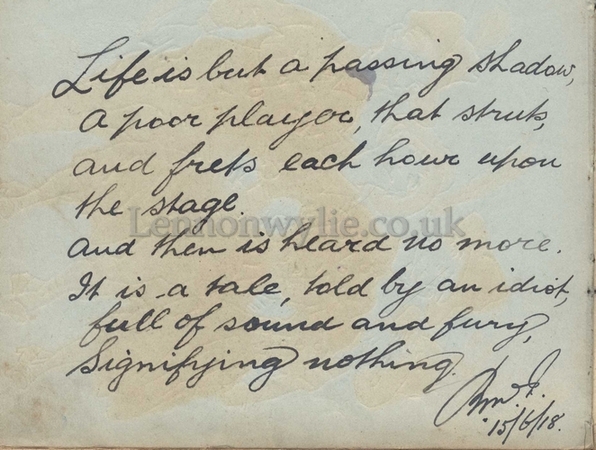 Life is but a passing shadow,
a poor player, that struts,
and frets each hour upon
the stage.
Lennonwylie.co.uk
and then is heard no more.
It is a tale, told by an idiot,
full of sound and fury,
Signifying nothing.
15/6/18.